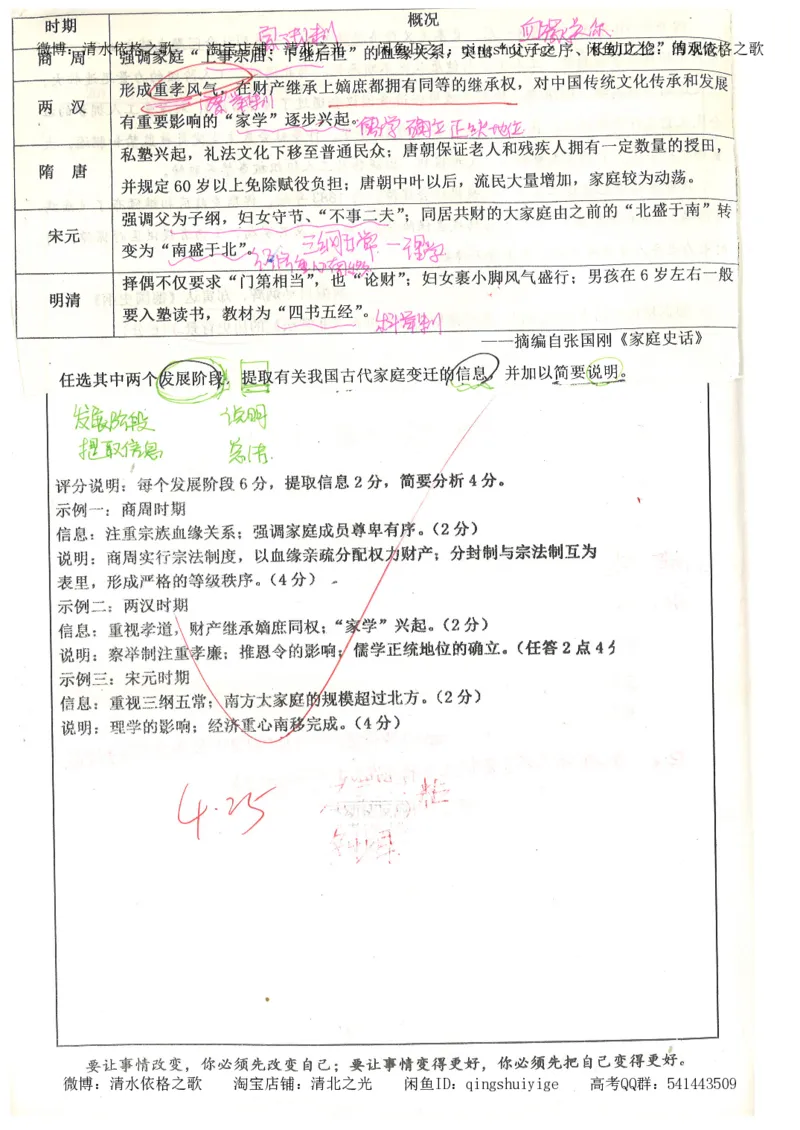 时期 概况
宗法制 血缘关系
微博：清水依格之歌 淘宝店铺：清北之光 闲鱼ID：qingshuiyige
商 周 强调家庭“上事宗庙、下继后世”的血缘关系；突出“父子之序、长幼之伦”的观念。
形成重孝风气，在财产继承上嫡庶都拥有同等的继承权，对中国传统文化传承和发展
两 汉 察举制
有重要影响的“家学”逐步兴起。儒学确立正统地位
私塾兴起，礼法文化下移至普通民众；唐朝保证老人和残疾人拥有一定数量的授田，
隋 唐
并规定 60 岁以上免除赋役负担；唐朝中叶以后，流民大量增加，家庭较为动荡。
强调父为子纲，妇女守节、“不事二夫”；同居共财的大家庭由之前的“北盛于南”转
宋元
变为“南盛于北”。 三纲五常—理学
经济重心南移
择偶不仅要求“门第相当”，也“论财”；妇女裹小脚风气盛行；男孩在 6 岁左右一般
明清
要入塾读书，教材为“四书五经”。科举制
——摘编自张国刚《家庭史话》
任选其中两个发展阶段，提取有关我国古代家庭变迁的信息，并加以简要说明。
发展阶段 说明
提取信息 总结.
评分说明：每个发展阶段 6 分，提取信息 2 分，简要分析 4 分。
示例一：商周时期
信息：注重宗族血缘关系；强调家庭成员尊卑有序。（2 分）
说明：商周实行宗法制度，以血缘亲疏分配权力财产；分封制与宗法制互为
表里，形成严格的等级秩序。（4 分）
示例二：两汉时期
信息：重视孝道，财产继承嫡庶同权；“家学”兴起。（2 分）
说明：察举制注重孝廉；推恩令的影响；儒学正统地位的确立。（任答 2 点 4 分
示例三：宋元时期
信息：重视三纲五常；南方大家庭的规模超过北方。（2 分）
说明：理学的影响；经济重心南移完成。（4 分）
4.25
要让事情改变，你必须先改变自己；要让事情变得更好，你必须先把自己变得更好。
微博：清水依格之歌 淘宝店铺：清北之光 闲鱼ID：qingshuiyige 高考QQ群：541443509